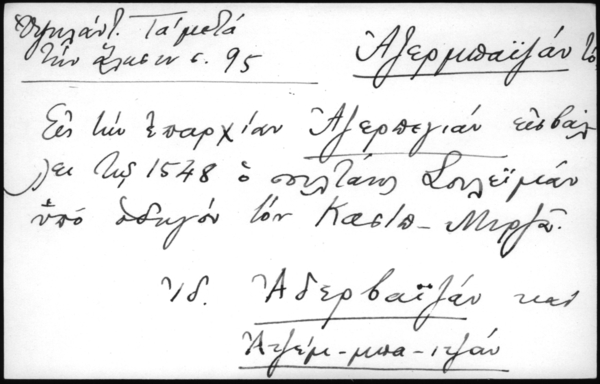 Τα μετά
την άλωσιν σ. 95
Ἀζερμπαϊζάν τό
Εἰς τήν ἐπαρχίαν Ἀζερπεγιάν εἰσβάλ
λει τῷ 1548 ὁ σουλτάνος Σουλεϊμάν
ὑπό ὁδηγόν τόν Κασίπ-Μιρζᾶ.
Ἰδ. Ἀδερβαϊζάν και
Ἀτζέμ-μπα-ιτζάν